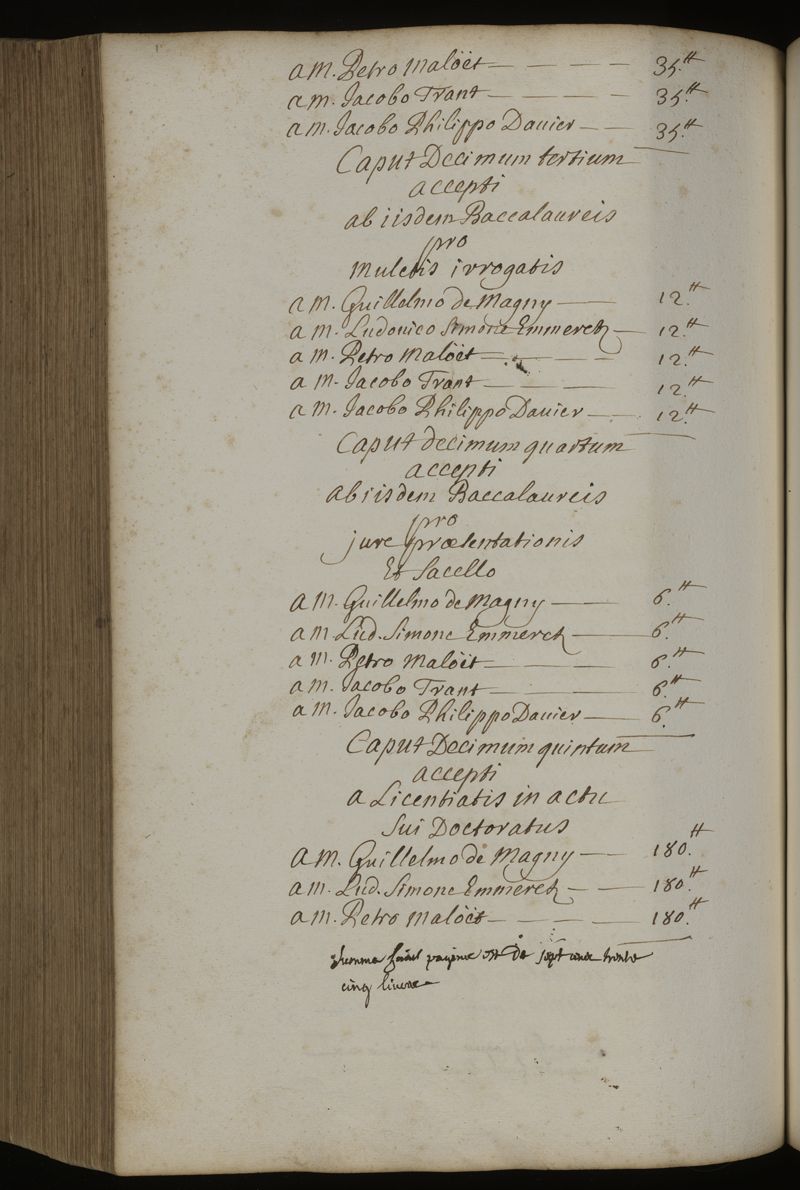 a M. Petro Maloët — — — — 35.tt
a M. Jacobo Trant — — — — 35.tt
a M. Jacobo Philippo Davier — — 35.tt
Caput Decimum tertium
accepti
ab iisdem Baccalaureis
pro
mulctis irrogatis
a M. Guillelmo de Magny — 12.tt
a M. Ludovico Simone Emmerez — 12.tt
a M. Petro Maloët — — — 12.tt
a M. Jacobo Trant — — — 12.tt
a M. Jacobo Philippo Davier — 12.tt
Caput decimum quartum
accepti
ab iisdem Baccalaureis
pro
jure præsentationis
Et Sacello
a M. Guillelmo de Magny — 6.tt
a M. Lud. Simone Emmerez — 6.tt
a M. Petro Maloët — — 6.tt
a M. Jacobo Trant — — 6.tt
a M. Jacobo Philippo Davier — 6.tt
Caput Decimum quintum
accepti
a Licentiatis in actu
sui Doctoratus
a M. Guillelmo de Magny — 180.tt
a M. Lud. Simone Emmerez — — 180.tt
a M. Petro Maloët — — — — 180.tt
Summa paginæ est de sept cent trente
cinq livres